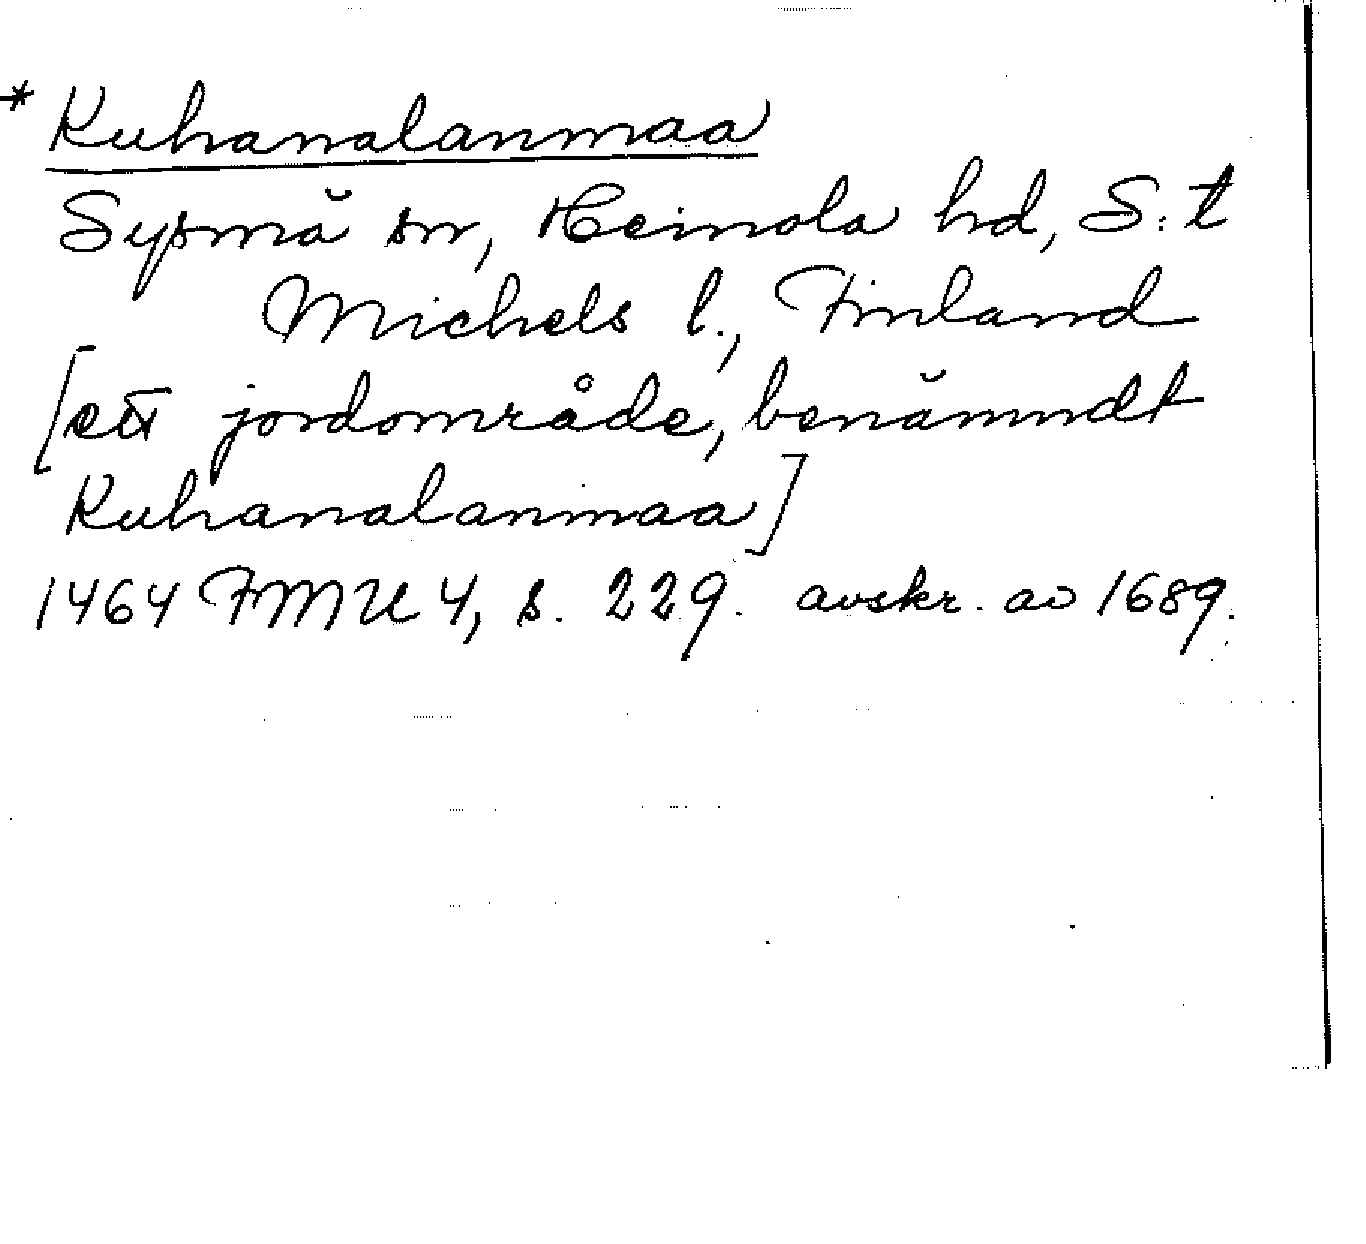 * Kuhanalanmaa
Sysmä sn, Heinola hd, S:t
Michels l., Finland
[ett jordområde, benämndt
Kuhanalanmaa]
1464 FMU 4, s. 229. avskr. av 1689.